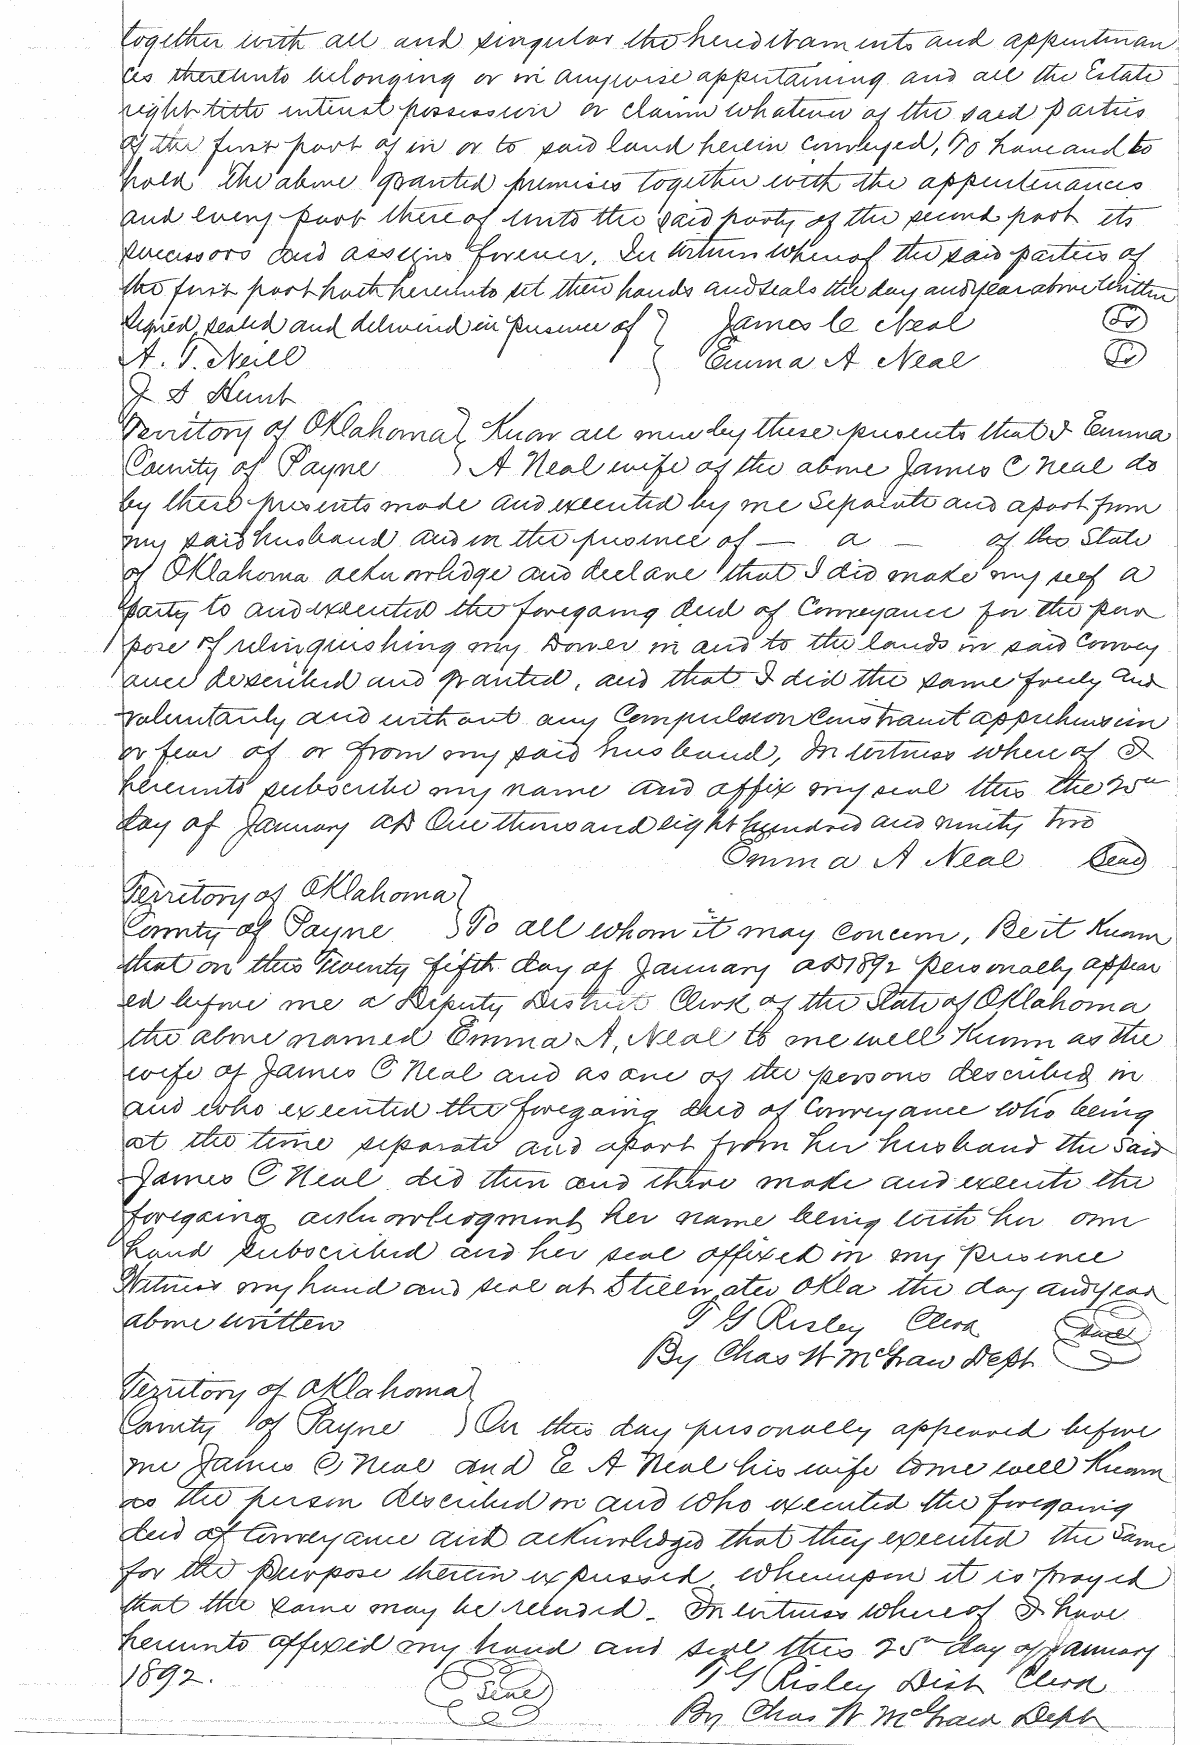 together with all and singular the hereditaments and appurtenan
ces thereunto belonging or in anywise appertaining and all the Estate
right title interest possession or claim whatever of the said parties
of the first part of in or to said land herein conveyed, To have and to
hold the above granted premises together with the appurtenances
and every part there of unto the said party of the second part its
successors and assigns forever. In witness whereof the said parties of
the first part hath hereunto set their hands and seals the day and year above written
Signed, sealed and delivered in presence of } James C Neal
A. T. Neill } Emma A Neal
J S Hunt
Territory of Oklahoma } Know all men by these presents that I Emma
County of Payne } A Neal wife of the above James C Neal do
by these presents made and executed by me Separate and apart from
my said husband and in the presence of — a — of the State
of Oklahoma acknowledge and declare that I did make my self a
party to and executed the foregoing deed of Conveyance for the pur
pose of relinquishing my Dower in and to the lands in said Convey
ance described and granted, and that I did the same freely and
voluntarily and without any Compulsion Constraint apprehension
or fear of or from my said husband, In witness where of I
hereunto subscribe my name and affix my seal this the 25th
day of January AD One thousand eight hundred and ninety two
Emma A Neal Seal
Territory of Oklahoma }
County of Payne } To all whom it may concern, Be it Known
that on this Twenty fifth day of January AD 1892 personally appear
ed before me a Deputy District Clerk of the State of Oklahoma
the above named Emma A. Neal to me well Known as the
wife of James C Neal and as one of the persons described in
and who executed the foregoing deed of Conveyance who being
at the time separate and apart from her husband the said
James C Neal did then and there make and execute the
foregoing acknowledgment her name being with her own
hand subscribed and her seal affixed in my presence
Witness my hand and seal at Stillwater Okla the day and year
above written T G Risley Clerk Seal
By Chas W McGraw Dept
Territory of Oklahoma }
County of Payne } On this day personally appeared before
me James C Neal and E A Neal his wife to me well Known
as the person described in and who executed the foregoing
deed of Conveyance and acknowledged that they executed the same
for the purpose therein expressed, whereupon it is prayed
that the same may be recorded. In witness whereof I have
hereunto affixed my hand and seal this 25th day of January
1892. Seal T G Risley Dist Clerk
By Chas W McGraw Dept